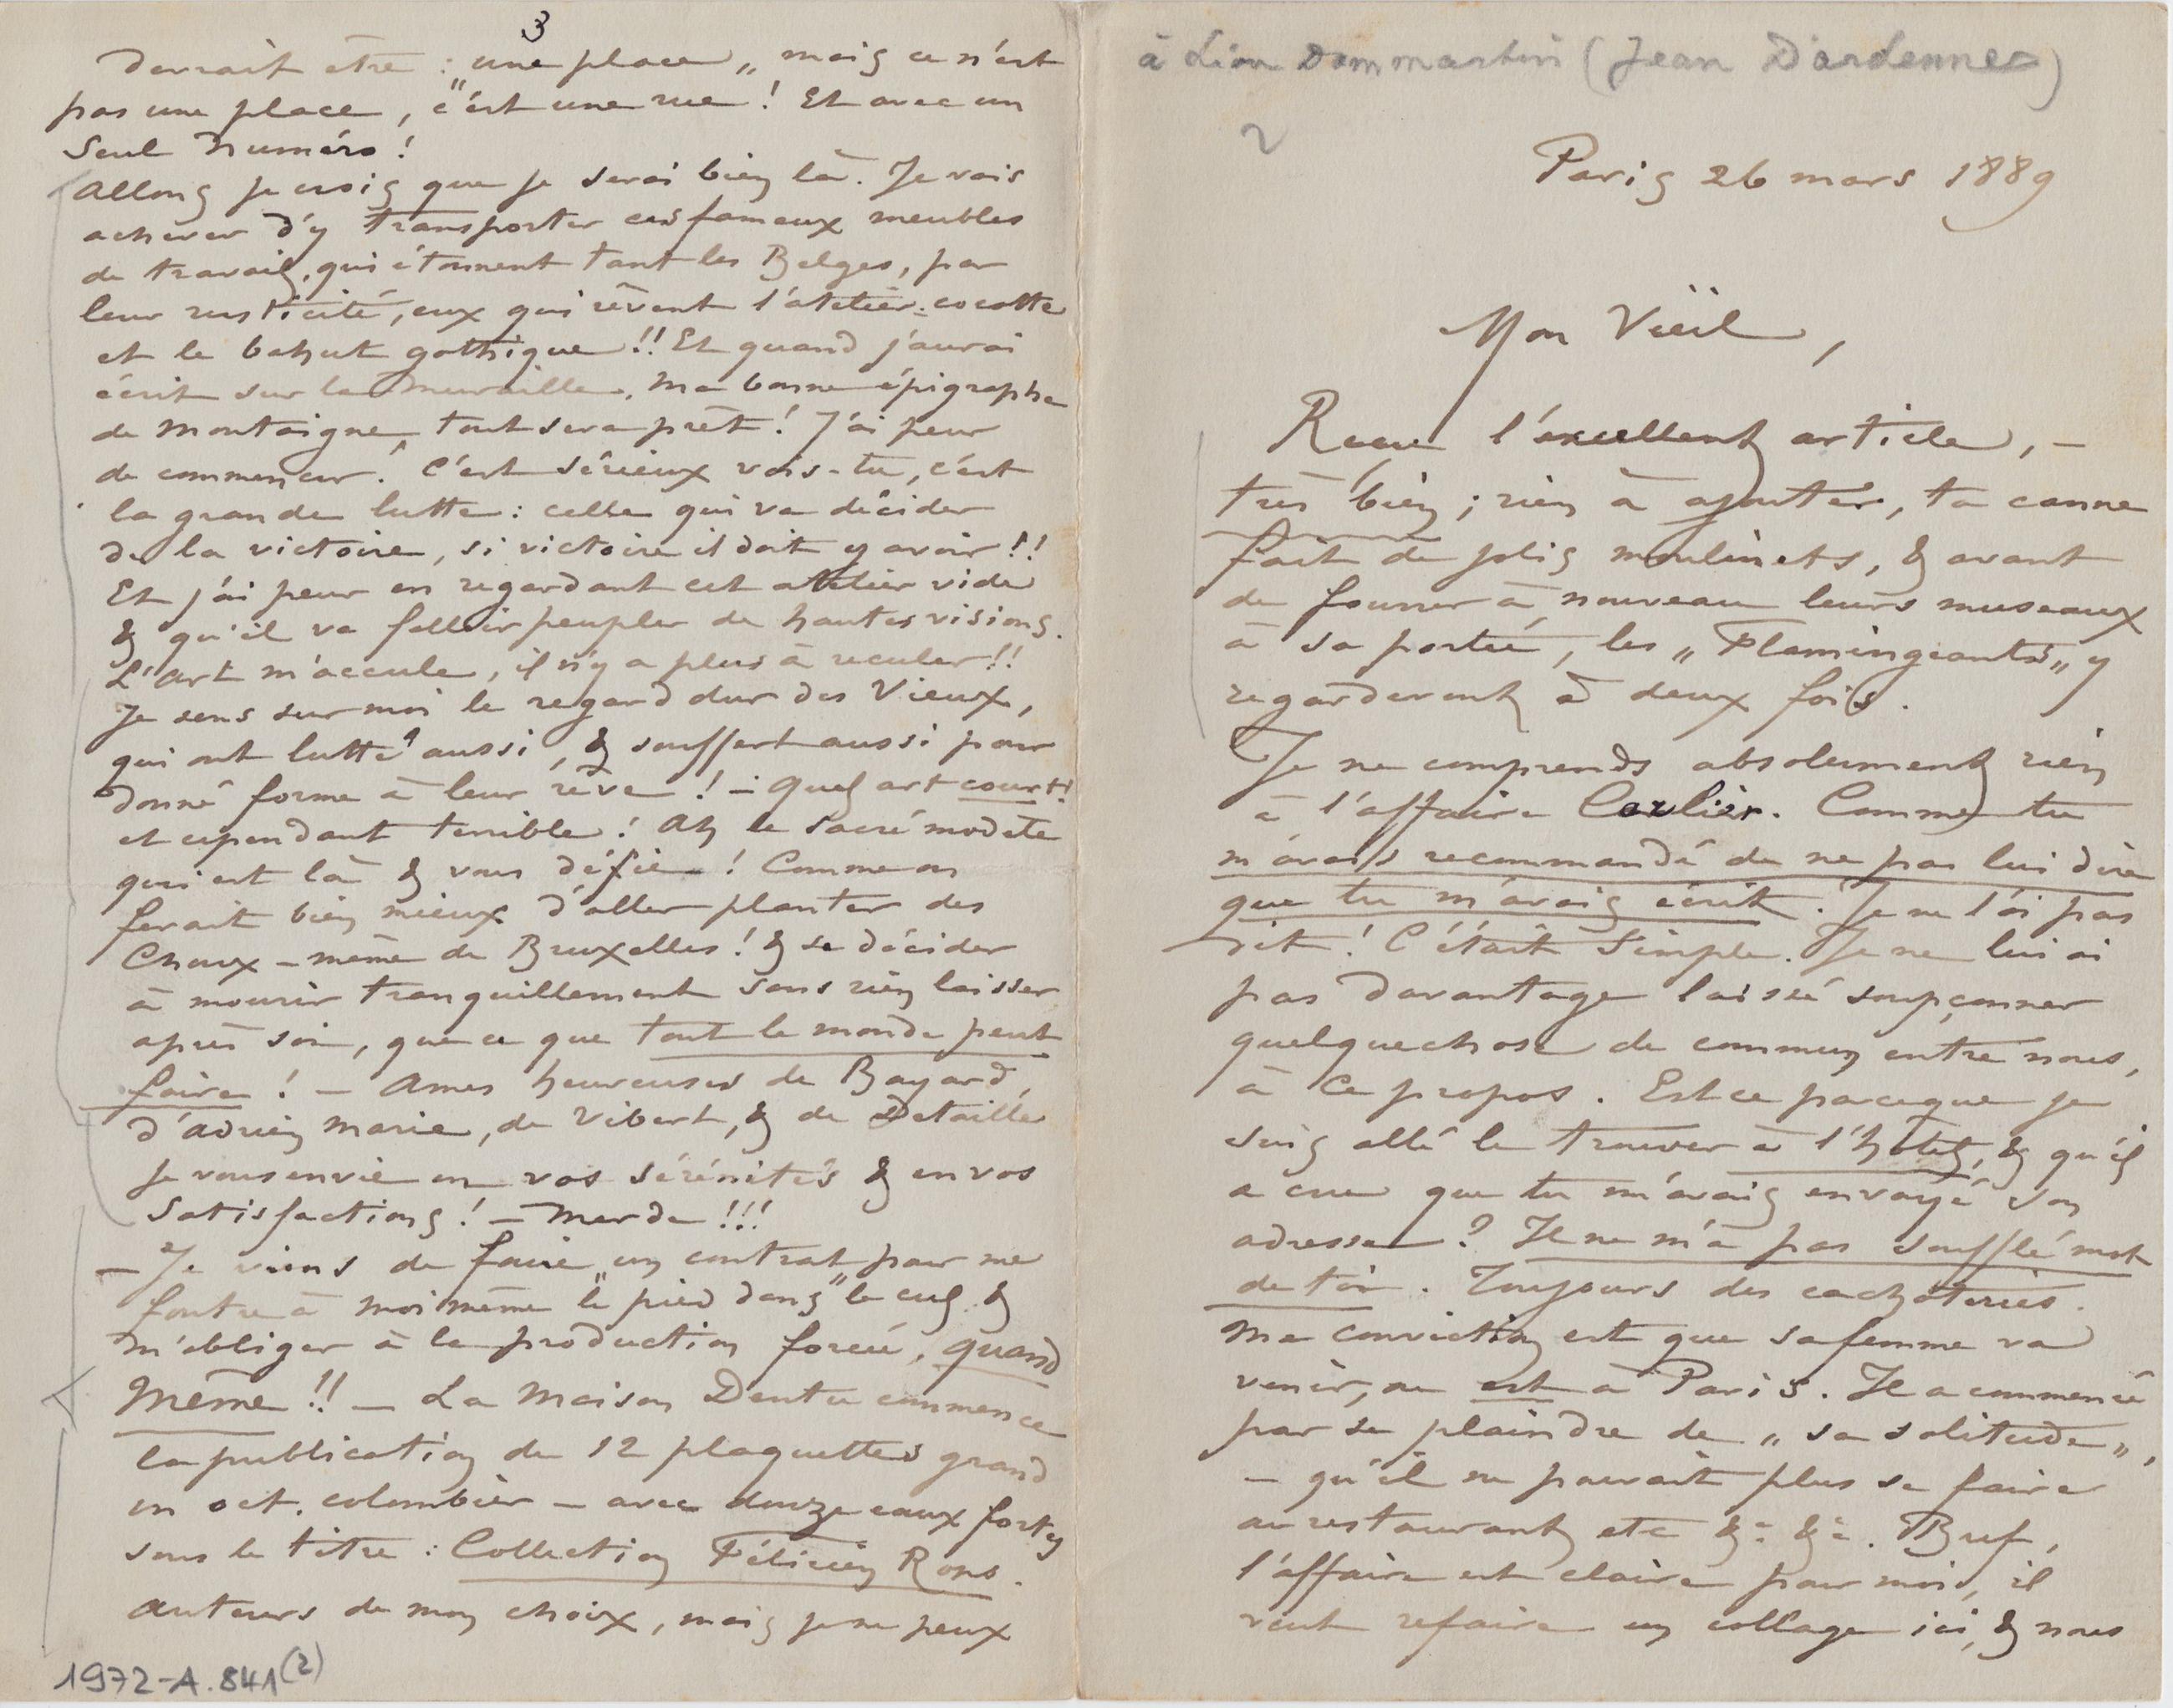 à Léon Dommartin (Jean D'ardennes)
2
Paris 26 mars 1889
Mon Vieil,
Reçu l'excellent article, –
très bien ; rien à ajouter, ta canne
fait de jolis moulinets, & avant
de fourrer à nouveau leurs museaux
à sa portée, les „ Flamingeants „ y
regarderont à deux fois.
Je ne comprends absolument rien
à l'affaire Carlier. Comme tu
m'avais recommandé de ne pas lui dire
que tu m'avais écrit. Je ne l'ai pas
dit ! C'était Simple. Je ne lui ai
pas davantage laissé soupçonner
quelquechose de commun entre nous,
à ce propos. Est ce parceque je
suis allé le trouver à l'hôtel, & qu'il
a cru que tu m'avais envoyé son
adresse ? Il ne m'a pas soufflé mot
de toi. Toujours des cachoteries.
Ma conviction est que sa femme va
venir, ou est à Paris. Il a commencé
par se plaindre de „ sa solitude „,
– qu'il ne pouvait plus se faire
au restaurant etc &a &a. Bref,
l'affaire est claire pour moi, il
veut refaire un collage ici, & nous
3
devrait être : „ une place „ mais ce n'est
pas une place, c'est une rue ! Et avec un
Seul Numéro !
Allons je crois que je serai bien là. Je vais
achever d'y transporter ces fameux meubles
de travail, qui étonnent tant les Belges, par
leur rusticité, eux qui rêvent l'atelier-cocotte
et le bahut gothique !! Et quand j'aurai
écrit sur la muraille, ma bonne épigraphe
de Montaigne, tout sera prêt ! J'ai peur
de commencer ! C'est sérieux vois-tu, c'est
la grande lutte : celle qui va décider
de la victoire, si victoire il doit y avoir !!
Et j'ai peur en regardant cet atelier vide
& qu'il va falloir peupler de hautes visions.
L'Art m'accule, il n'y a plus à reculer !!
Je sens sur moi le regard dur des Vieux,
qui ont lutté aussi, & souffert aussi pour
donné forme à leur rêve ! – Quel art court !
et cependant terrible ! Ah le sacré modèle
qui est là & vous défie ! Comme on
ferait bien mieux d'aller planter des
Choux – même de Bruxelles ! & se décider
à mourir tranquillement sans rien laisser
après soi, que ce que tout le monde peut
faire ! – Ames heureuses de Bayard,
d'Adrien Marie, de Vibert, & de Detaille
je vous envie en vos sérénités & en vos
Satisfactions ! – Merde !!!
– Je viens de faire un contrat pour me
foutre à moi même „ le pied dans „ le cul &
m'obliger à la production forcée, quand
Même !! – La Maison Dentu commence
la publication de 12 plaquettes grand
in oct. colombier – avec douze eaux fortes
sous le titre : Collection Félicien Rops.
Auteurs de mon choix, mais je ne peux
1972-A.841(2)